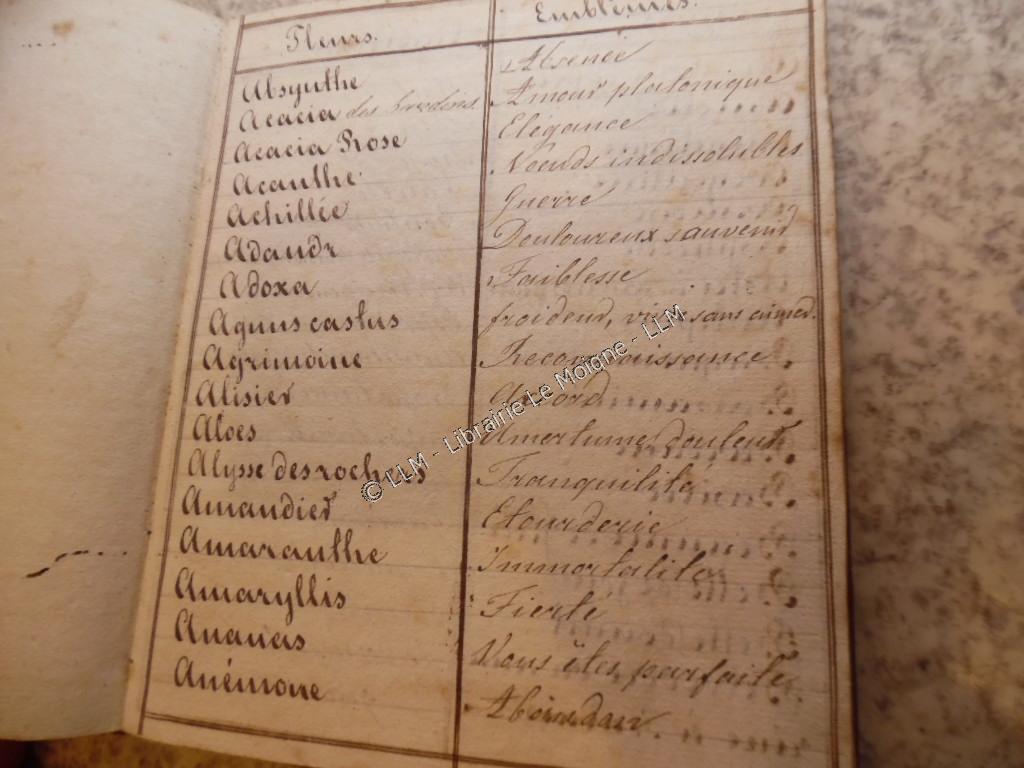 Fleurs. Emblèmes.
Absynthe Absence
Acacia Amour platonique
Acacia Rose Elégance
Acanthe Nœuds indissolubles
Achillée Guerre
Douloureux souvenir
Adoxa Faiblesse
Agnus castus froideur, sans aimer.
Agrimoine Reconnaissance
Alisier Accord
Aloes Amertume, douleur
Alysse des roches Tranquilité
Amandier Etourderie
Amaranthe Immortalité
Amaryllis Fierté
Ananas Vous êtes parfaite
Anémone Abandon
© LLM - Librairie Le Moigne - LLM